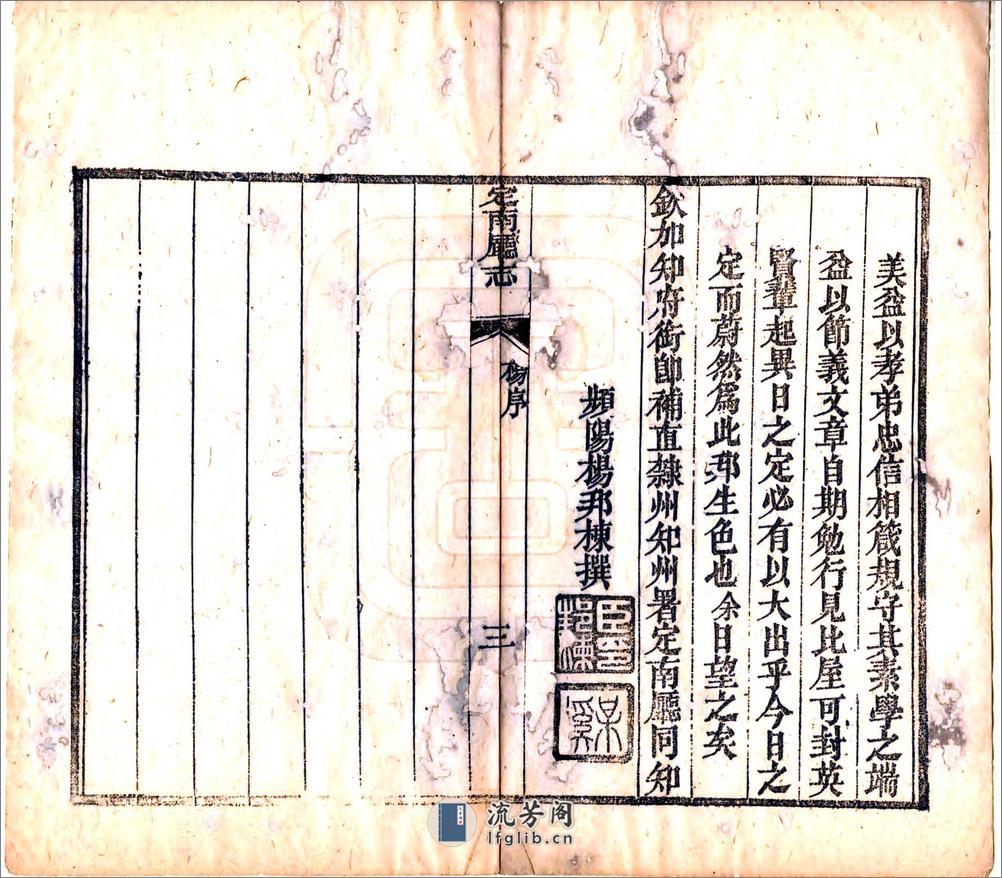 美益以孝弟忠信相箴規守其素學之端
益以節義文章自期勉行見比屋可封英
賢輩起異日之定必有以大出乎今日之
定而蔚然爲此邦生色也余日望之矣
欽加知府銜卽補直隸州知州署定南廳同知
頻陽楊邦棟撰
定南廳志
楊序
三
流芳阁
lfglib.cn